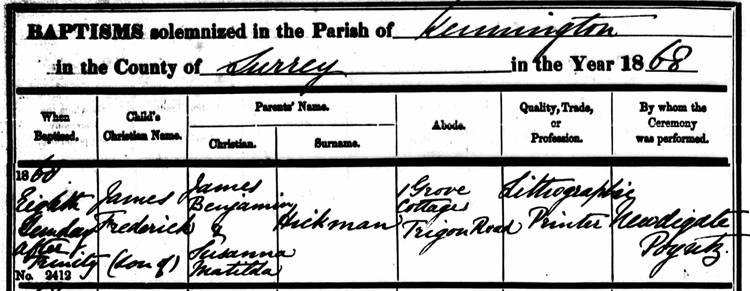 BAPTISMS solemnized in the Parish of Kennington
in the County of Surrey in the Year 1868
When Baptised.
Child's Christian Name.
Parents' Name.
Christian.
Surname.
Abode.
Quality, Trade, or Profession.
By whom the Ceremony was performed.
1868
Eighth
Sunday
after
Trinity
No. 2412
James
Frederick
(son of)
James
Benjamin
&
Susanna
Matilda
Hickman
1 Grove
Cottages
Trigon Road
Lithographic
Printer
Newdigate
Poyntz